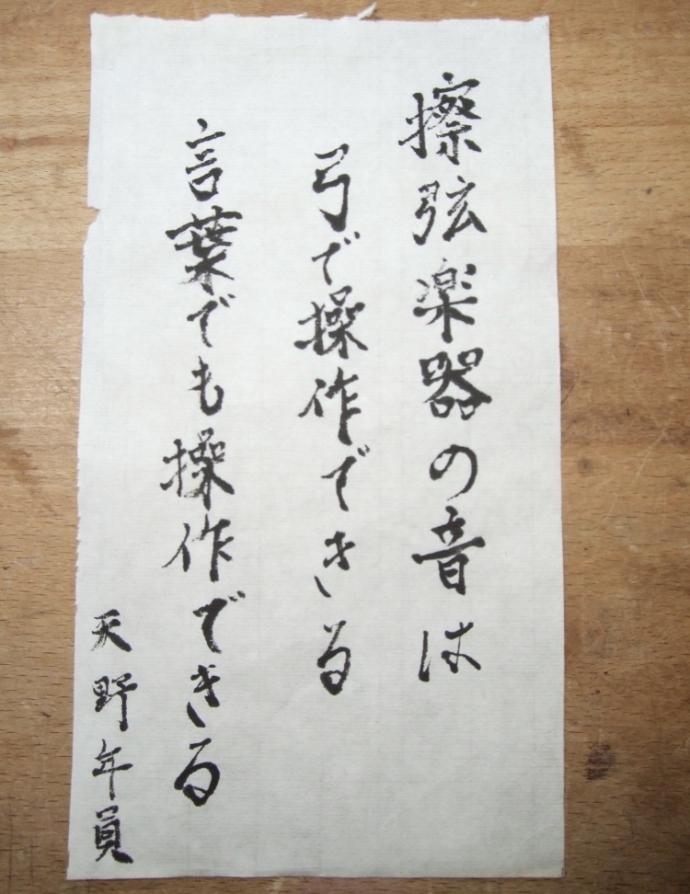 擦弦楽器の音は
弓で操作できる
言葉でも操作できる
天野年員